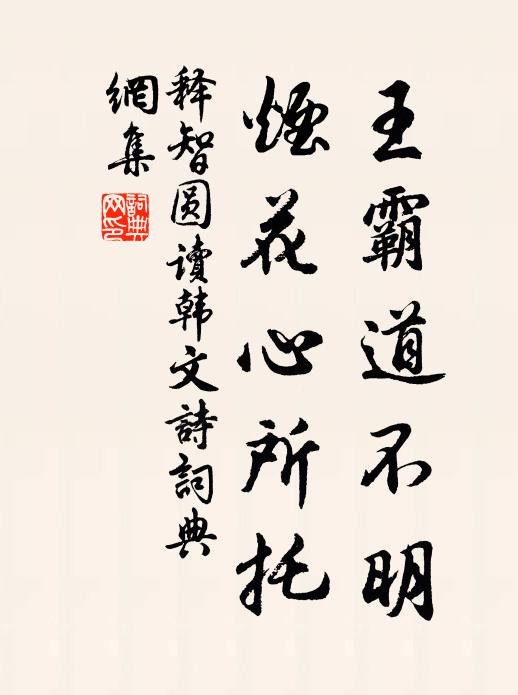 王霸道不明
煙花心所托
释智圆读韩文詩詞典
網集
詞典
网印